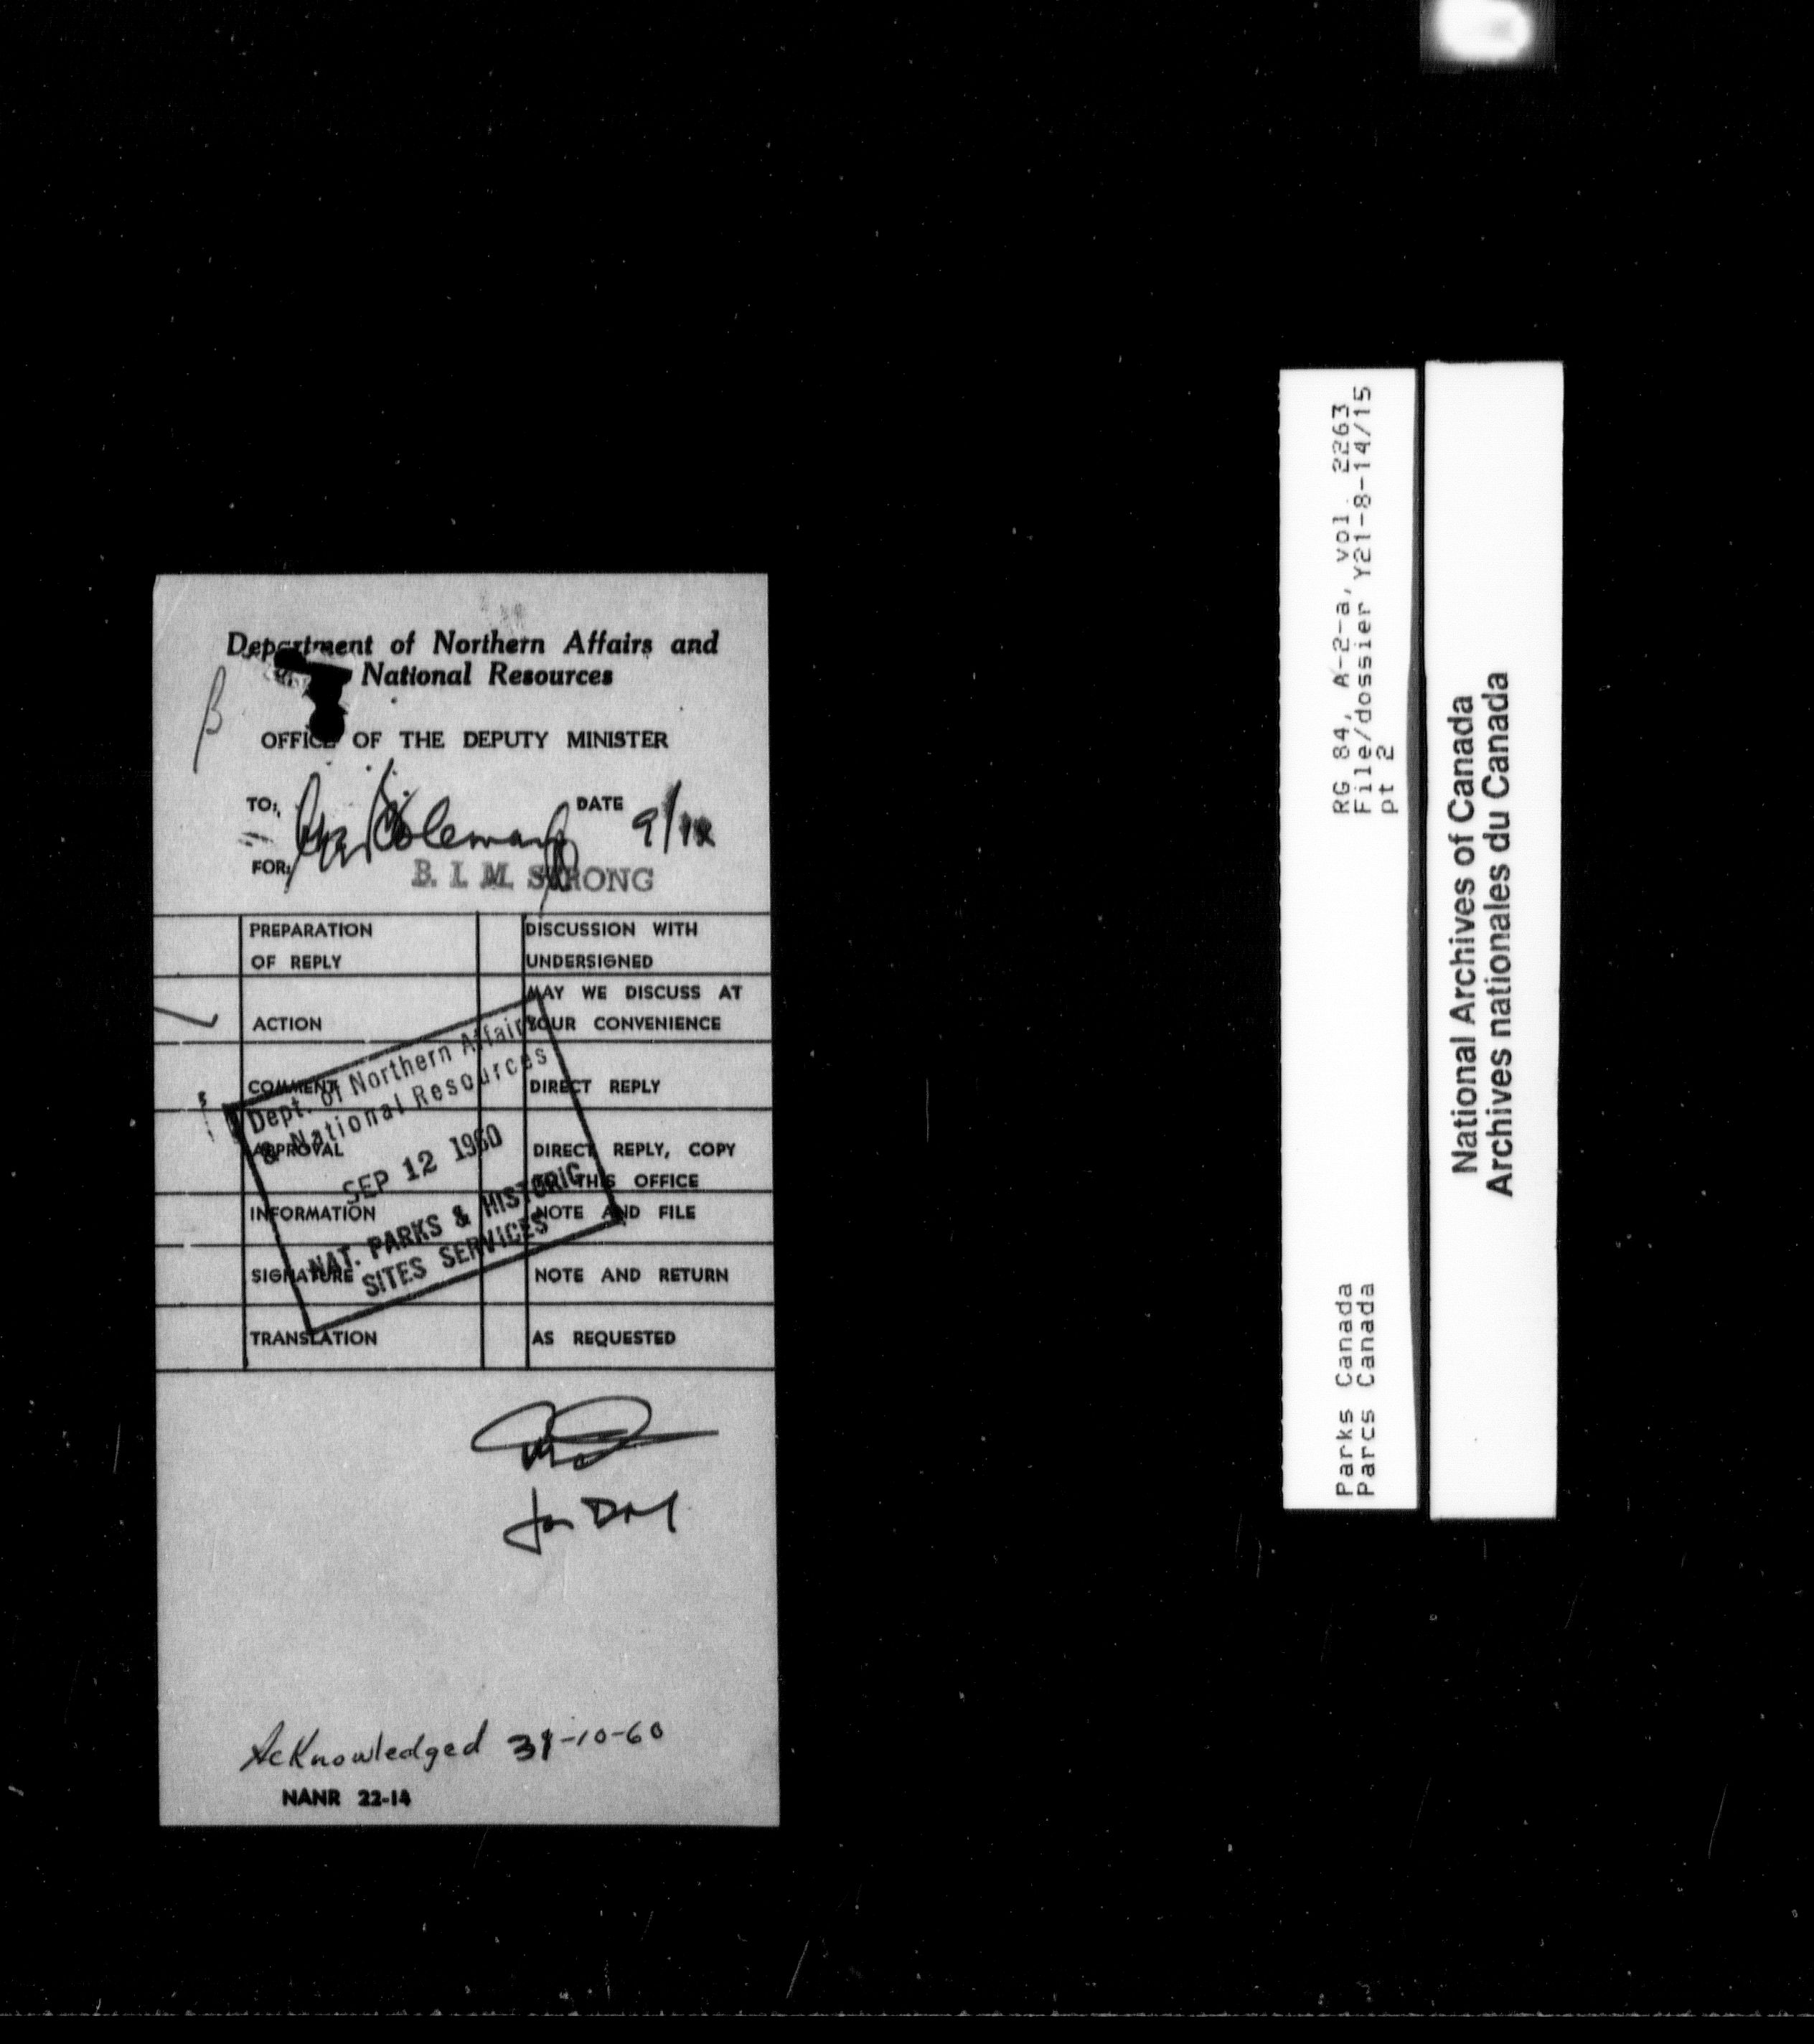 Department of Northern Affairs and
National Resources
B
OFFICE OF THE DEPUTY MINISTER
TO: Mr. Coleman DATE 9/12
FOR:
B. I. M. STRONG
PREPARATION
OF REPLY
DISCUSSION WITH
UNDERSIGNED
ACTION
MAY WE DISCUSS AT
YOUR CONVENIENCE
COMMENT
DIRECT REPLY
APPROVAL
DIRECT REPLY, COPY
TO THIS OFFICE
INFORMATION
NOTE AND FILE
SIGNATURE
NOTE AND RETURN
TRANSLATION
AS REQUESTED
Dept. of Northern Affairs
& National Resources
SEP 12 1960
NAT. PARKS & HISTORIC
SITES SERVICES
for DM
Acknowledged 31-10-60
NANR 22-14
RG 84, A-2-a, vol. 2263
File/dossier Y21-8-14/15
pt 2
Parks Canada
Parcs Canada
National Archives of Canada
Archives nationales du Canada